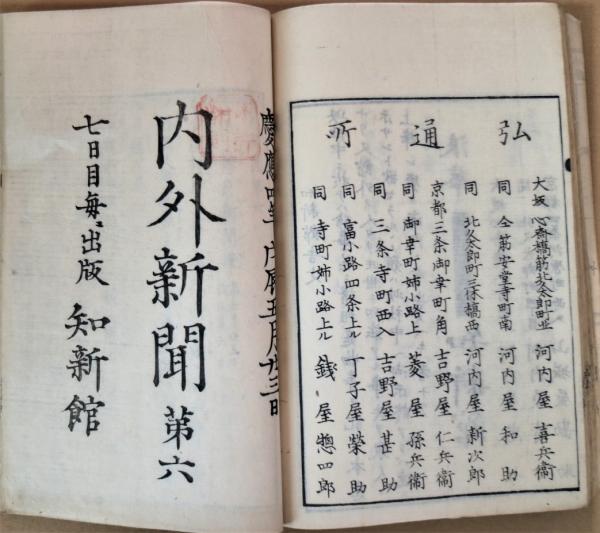 弘通所
大坂 心斎橋筋北久太郎町 河内屋 喜兵衞
同 仝筋安堂寺町南 河内屋 和助
同 北久太郎町三休橋西 河内屋 新次郎
京都三条御幸町角 吉野屋 仁兵衞
同 御幸町姉小路上 菱屋 孫兵衞
同 三条寺町西入 吉野屋 甚助
同 富小路四条上ル 丁子屋 榮助
同 寺町姉小路上ル 錢屋 惣四郎
慶應四年戊辰五月廿三日
内外新聞 第六
七日目每ニ出版 知新館